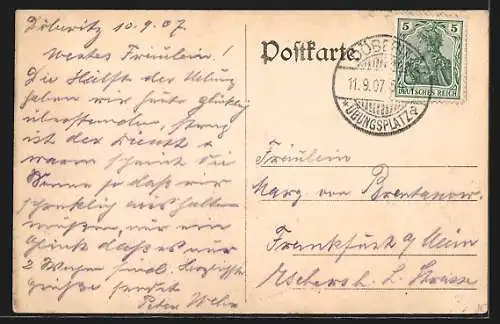 Döberitz 10.9.07.
Wertes Fräulein!
Die Hälfte der Übung
haben wir heute glücklich
überstanden, streng
ist der Dienst u.
warm scheint die
Sonne so daß wir
schrecklich aus halten
müßen, nur ein
Glück daß es nur
2 Wochen sind. Herzlichste
Grüße sendet
Peter
Postkarte
DÖBERITZ
11.9.07
ÜBUNGSPLATZ
5 5
DEUTSCHES REICH
Fräulein
Marg. von Brentano
Frankfurt a/Main
Eschersh. L. Strasse